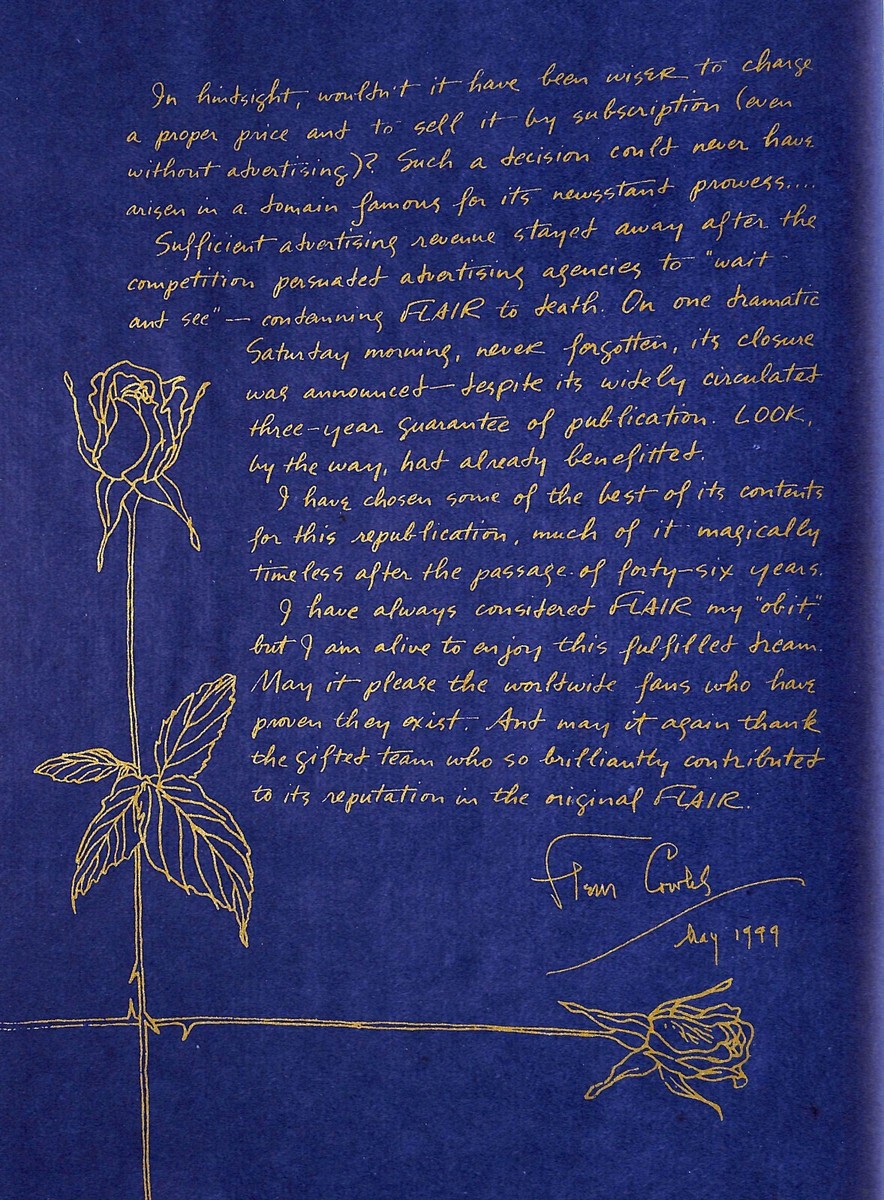 In hindsight, wouldn't it have been wiser to charge
a proper price and to sell it by subscription (even
without advertising)? Such a decision could never have
arisen in a domain famous for its newsstand prowess....
Sufficient advertising revenue stayed away after the
competition persuaded advertising agencies to "wait
and see" — condemning FLAIR to death. On one dramatic
Saturday morning, never forgotten, its closure
was announced — despite its widely circulated
three-year guarantee of publication. LOOK,
by the way, had already benefitted.
I have chosen some of the best of its contents
for this republication, much of it magically
timeless after the passage of forty-six years.
I have always considered FLAIR my "obit,"
but I am alive to enjoy this fulfilled dream.
May it please the worldwide fans who have
proven they exist. And may it again thank
the gifted team who so brilliantly contributed
to its reputation in the original FLAIR.
Fleur Cowles
May 1999